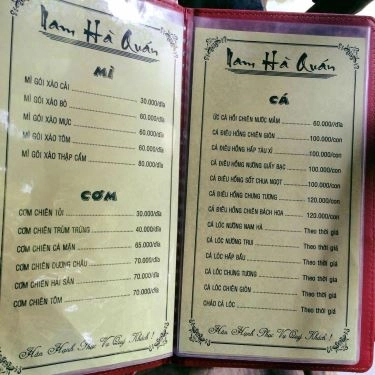 Nam Hà Quán
MÌ
MÌ GÓI XÀO CẢI 30.000/dĩa
MÌ GÓI XÀO BÒ 60.000/dĩa
MÌ GÓI XÀO MỰC 60.000/dĩa
MÌ GÓI XÀO TÔM 60.000/dĩa
MÌ GÓI XÀO THẬP CẨM 80.000/dĩa
CƠM
CƠM CHIÊN TỎI 30.000/dĩa
CƠM CHIÊN TRÙM TRỨNG 40.000/dĩa
CƠM CHIÊN CÁ MẶN 65.000/dĩa
CƠM CHIÊN DƯƠNG CHÂU 70.000/dĩa
CƠM CHIÊN HẢI SẢN 70.000/dĩa
CƠM CHIÊN TÔM 70.000/dĩa
Hân Hạnh Phục Vụ Quý Khách !
Nam Hà Quán
CÁ
ỨC CÁ HỒI CHIÊN NƯỚC MẮM 60.000/dĩa
CÁ ĐIÊU HỒNG CHIÊN GIÒN 100.000/con
CÁ ĐIÊU HỒNG HẤP TÀU XÌ 100.000/con
CÁ ĐIÊU HỒNG NƯỚNG GIẤY BẠC 100.000/con
CÁ ĐIÊU HỒNG SỐT CHUA NGỌT 100.000/con
CÁ ĐIÊU HỒNG CHƯNG TƯƠNG 120.000/con
CÁ ĐIÊU HỒNG CHIÊN BÁCH HOA 120.000/con
CÁ LÓC NƯỚNG NAM HÀ Theo thời giá
CÁ LÓC NƯỚNG TRUI Theo thời giá
CÁ LÓC HẤP BẦU Theo thời giá
CÁ LÓC CHƯNG TƯƠNG Theo thời giá
CÁ LÓC CHIÊN GIÒN Theo thời giá
CHÁO CÁ LÓC Theo thời giá
Hân Hạnh Phục Vụ Quý Khách !